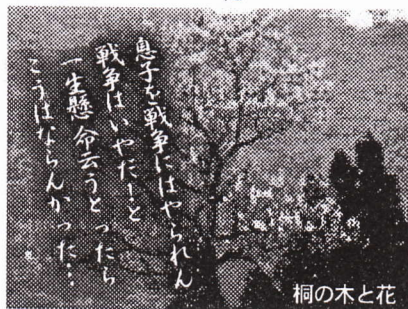 息子を戦争にはやられん
戦争はいやだ!と
一生懸命云うとったら
こうはならんかった…
桐の木と花